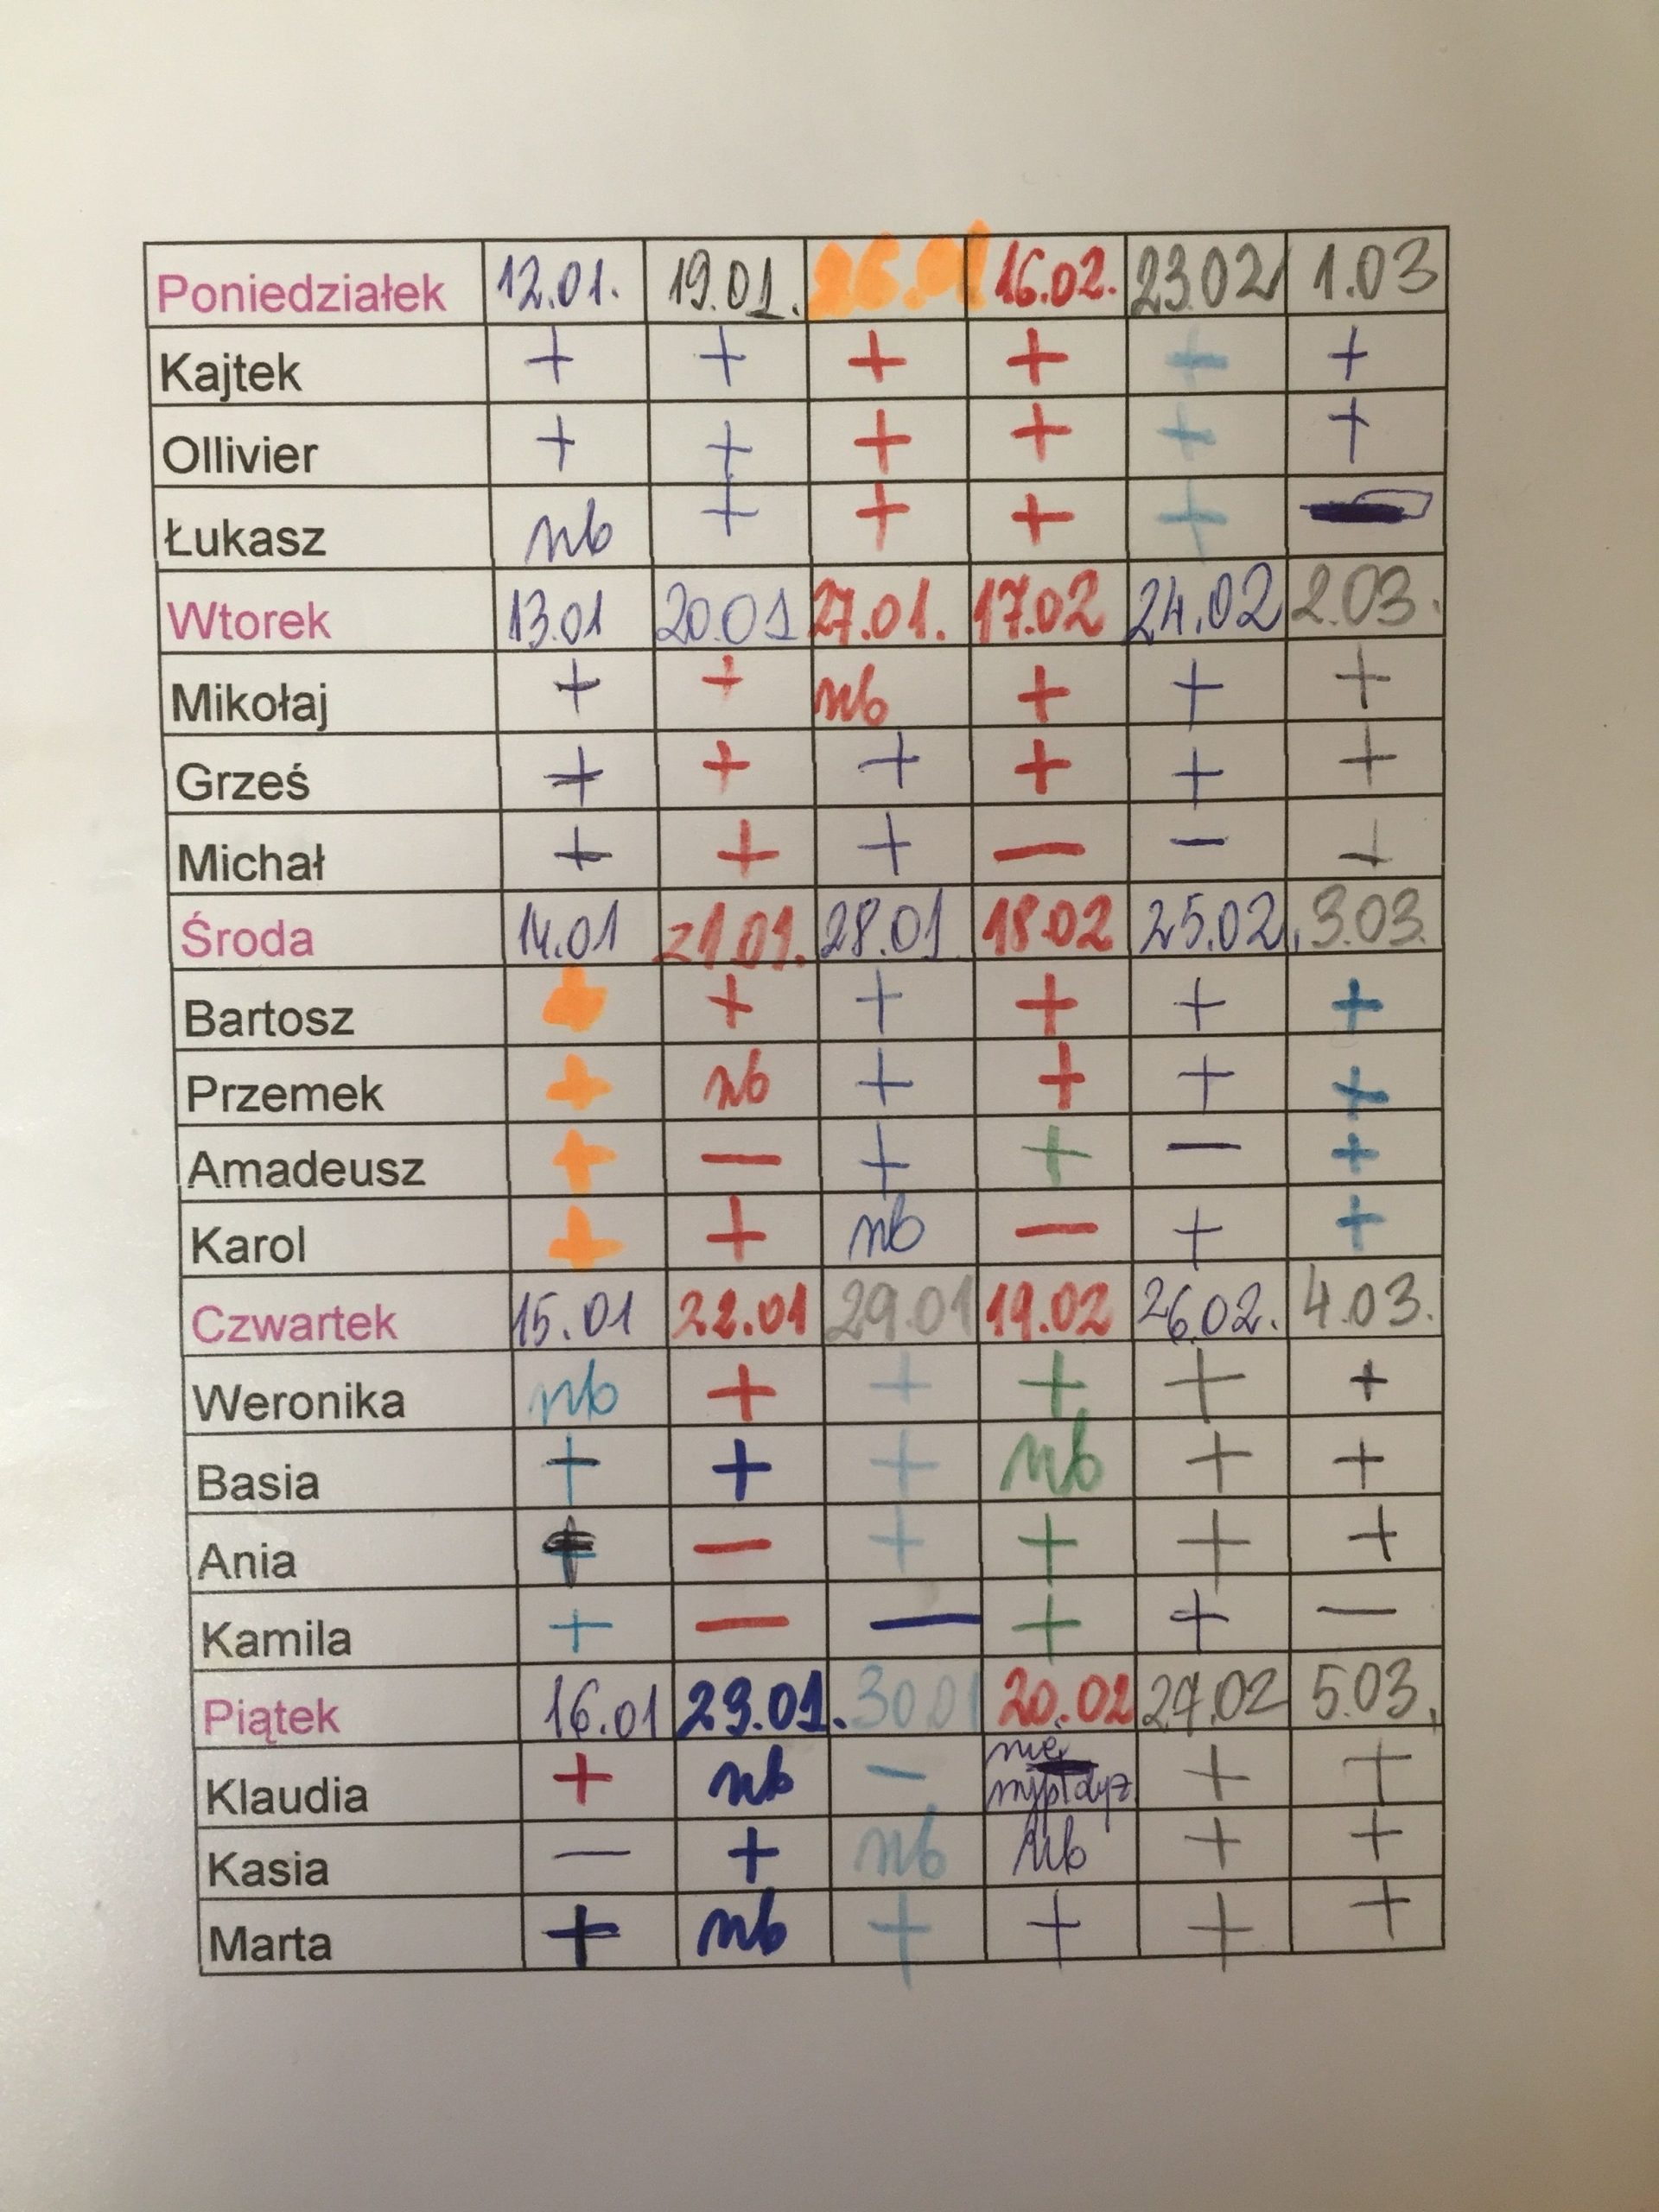 Poniedziałek 12.01. 19.01. 26.01 16.02. 23.02 1.03
Kajtek + + + + + +
Ollivier + + + + + +
Łukasz nb + + + + −
Wtorek 13.01 20.01 27.01. 17.02 24.02 2.03.
Mikołaj + + nb + + +
Grześ + + + + + +
Michał + + + − − +
Środa 14.01 21.01. 28.01. 18.02 25.02. 3.03.
Bartosz + + + + + +
Przemek + nb + + + +
Amadeusz + − + + − +
Karol + + nb − + +
Czwartek 15.01 22.01 29.01 19.02 26.02. 4.03.
Weronika nb + + + + +
Basia + + + nb + +
Ania + − + + + +
Kamila + − − + + −
Piątek 16.01 23.01. 30.01 20.02 27.02 5.03.
Klaudia + nb − nie + +
Kasia − + nb nb + +
Marta + nb + + + +